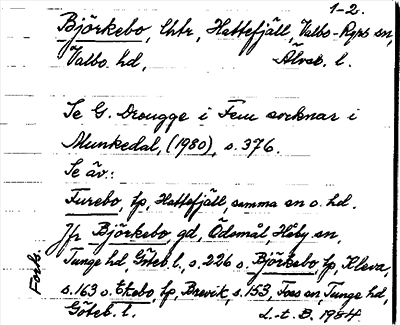 1-2.
Björkebo, lhtr, Hattefjäll, Valbo-Ryrs sn,
Valbo hd, Älvsb. l.
Se G. Drougge i Fem socknar i
Munkedal, (1980), s. 376.
Se äv.:
Furebo, tp, Hattefjäll, samma sn o. hd.
Jfr Björkebo gd, Ödsmål, Håby sn,
Tunge hd, Göteb. l., s. 226 o. Björkebo, tp, Kleva,
s. 163 o. Ekebo, tp, Brevik, s. 153, Foss sn, Tunge hd,
Göteb. l.
L-t. B. 1984
Fork.